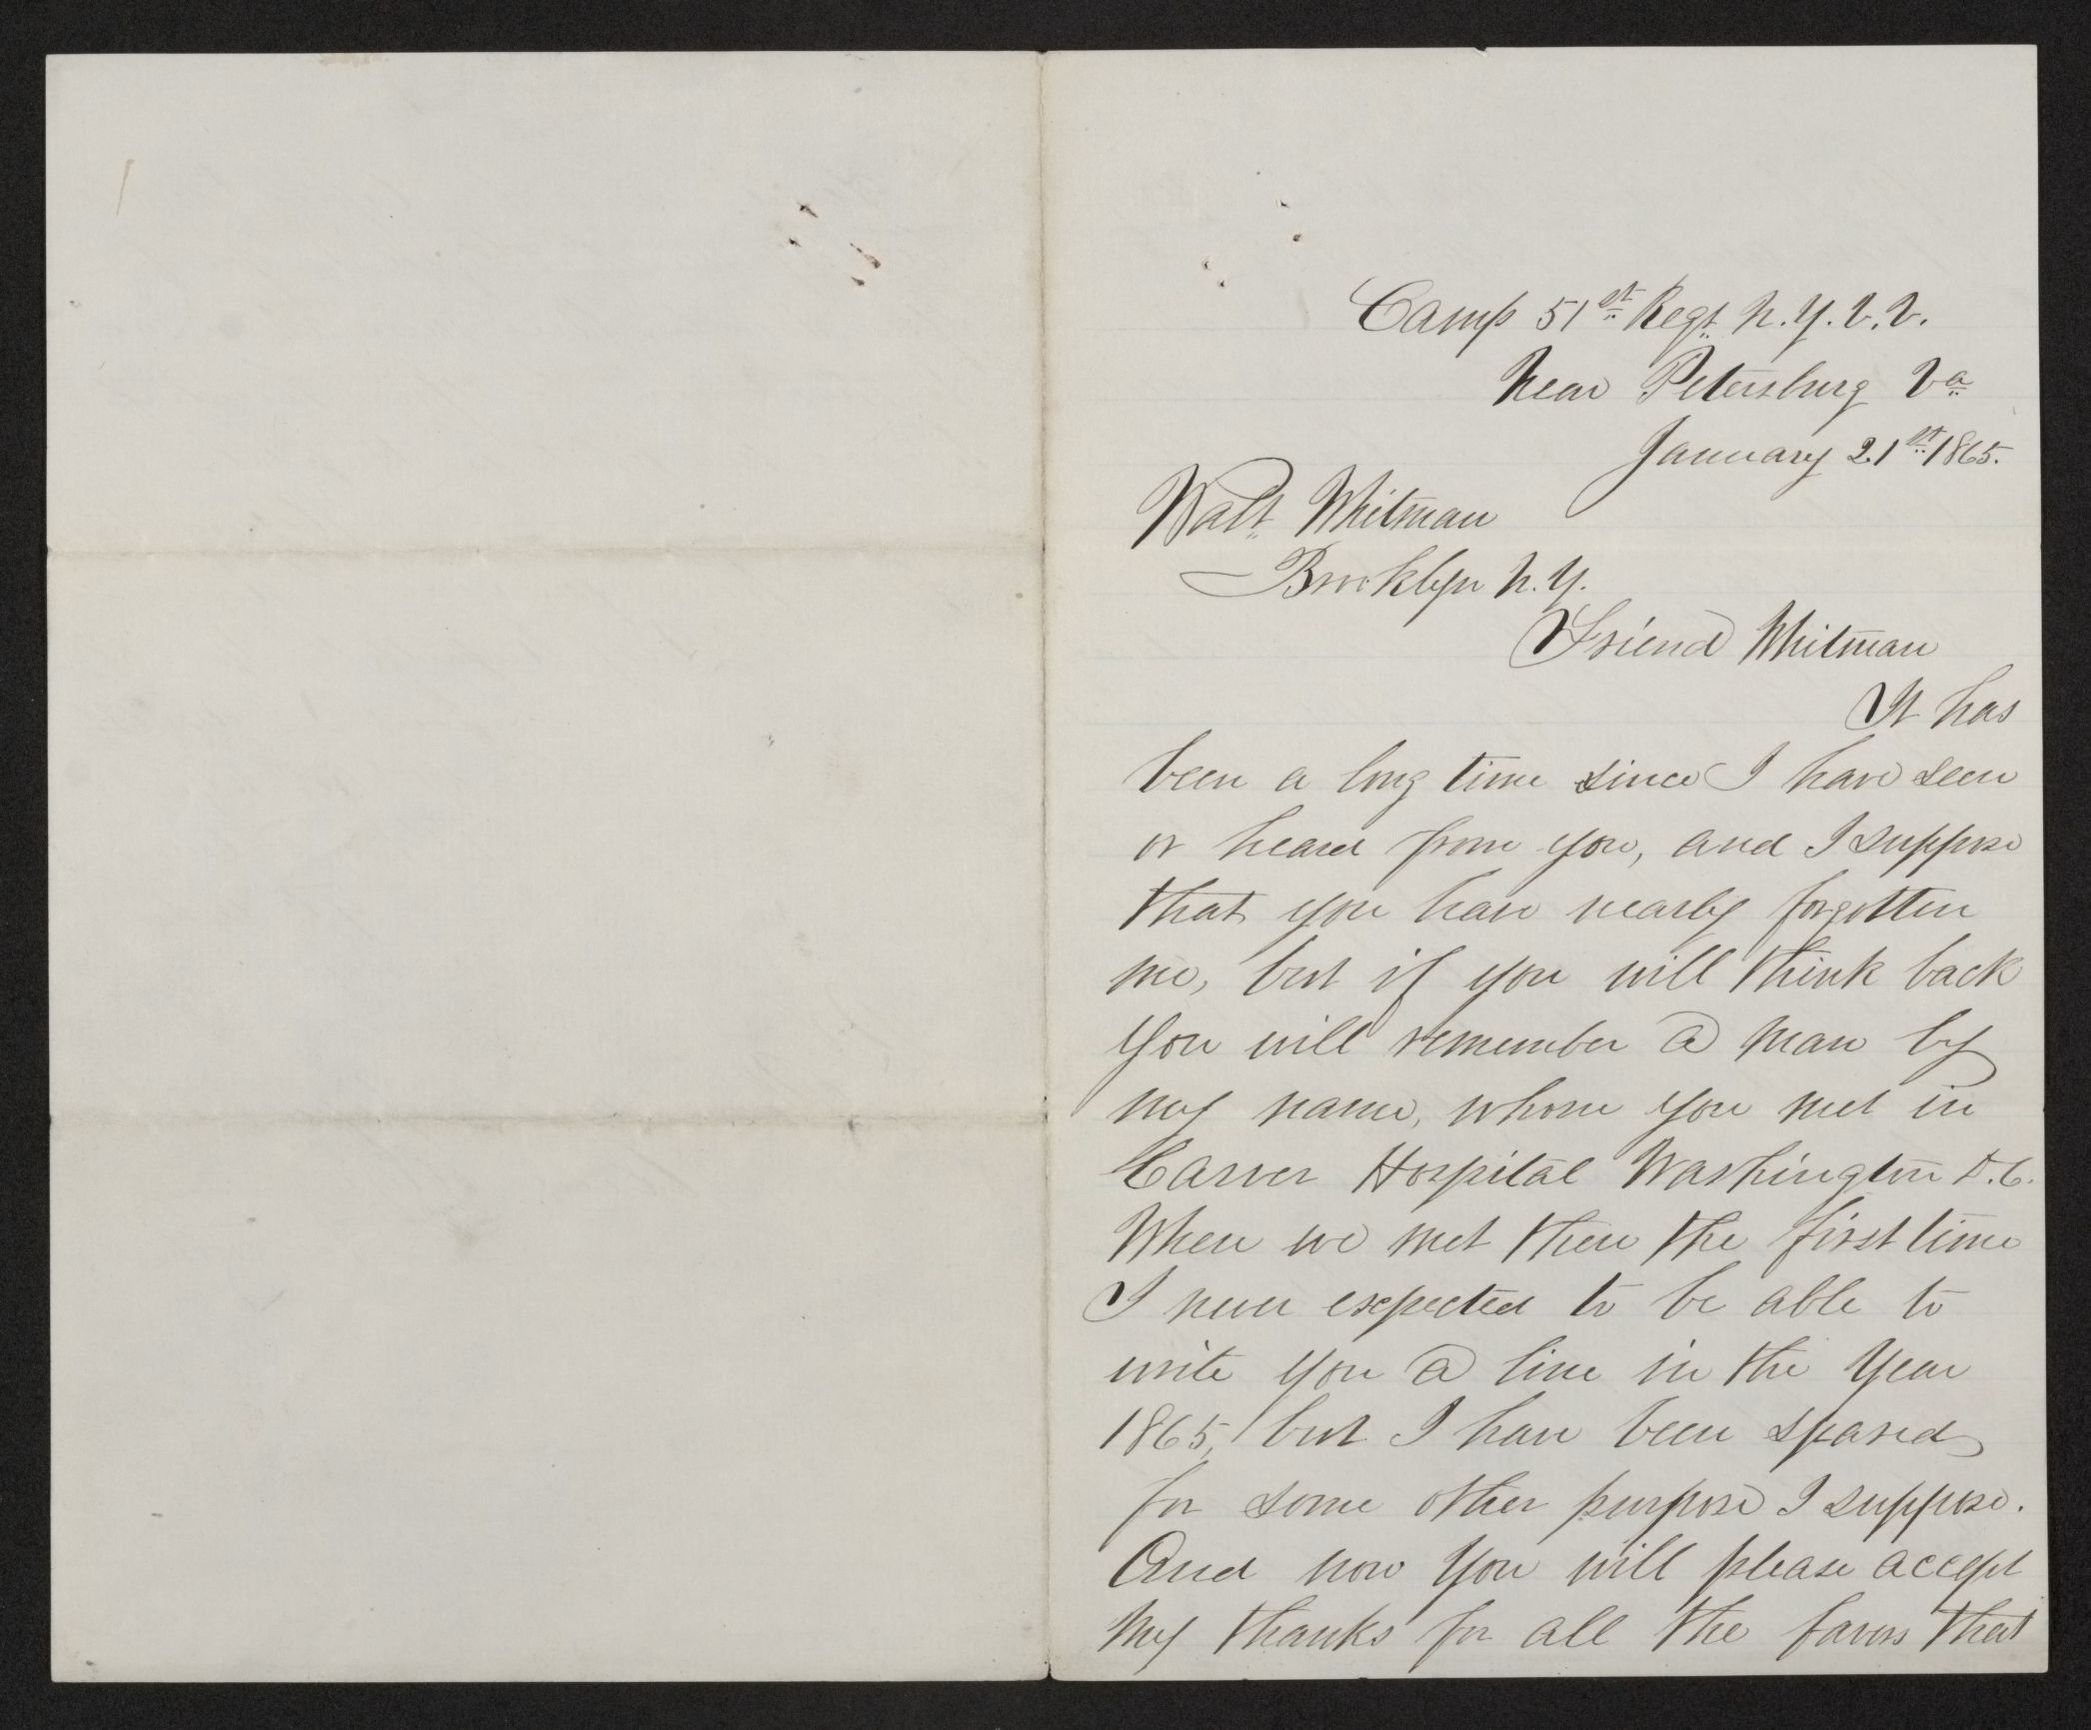 Camp 51st Regt N. Y. V. V.
Near Petersburg Va
January 21st 1865.
Walt Whitman
Brooklyn N. Y.
Friend Whitman
It has
been a long time since I have seen
or heard from you, and I suppose
that you have nearly forgotten
me, but if you will think back
you will remember a man by
my name, whom you met in
Carver Hospital Washington D. C.
When we met there the first time
I never expected to be able to
write you a line in the Year
1865, but I have been spared
for some other purpose I suppose.
And now you will please accept
my thanks for all the favors that